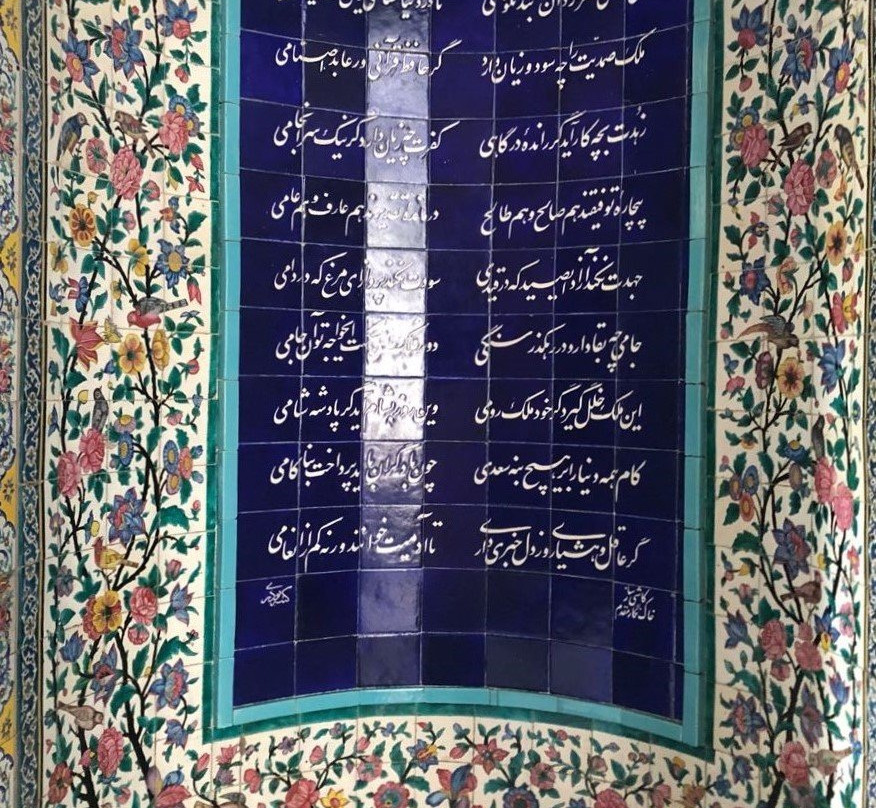 ملک صمدیت را چه سود و زیان دارد گر حافظ قرآنی ور عابد اصنامی
زهدت بچه کار آید گر راندهٔ درگاهی کفرت چه زیان دارد گر نیک سرانجامی
بیچاره توفیقند هم صالح و هم طالح درماندهٔ تقدیرند هم عارف و هم عامی
جهدت نکند آزاد ای صید که در قیدی سودت نکند پرواز ای مرغ که در دامی
جامی چه بقا دارد در رهگذر سنگی دور فلک آن سنگست ایخواجه تو آن جامی
این ملک خلل گیرد گر خود ملک رومی وین روز بشام آید گر پادشه شامی
کام همه دنیا را بر هیچ بنه سعدی چون با دگران باید پرداخت بناکامی
گر عاقل و هشیاری وز دل خبری داری تا آدمیت خوانند ورنه کم از انعامی
کاشی ساز
خاک نگار مقدم